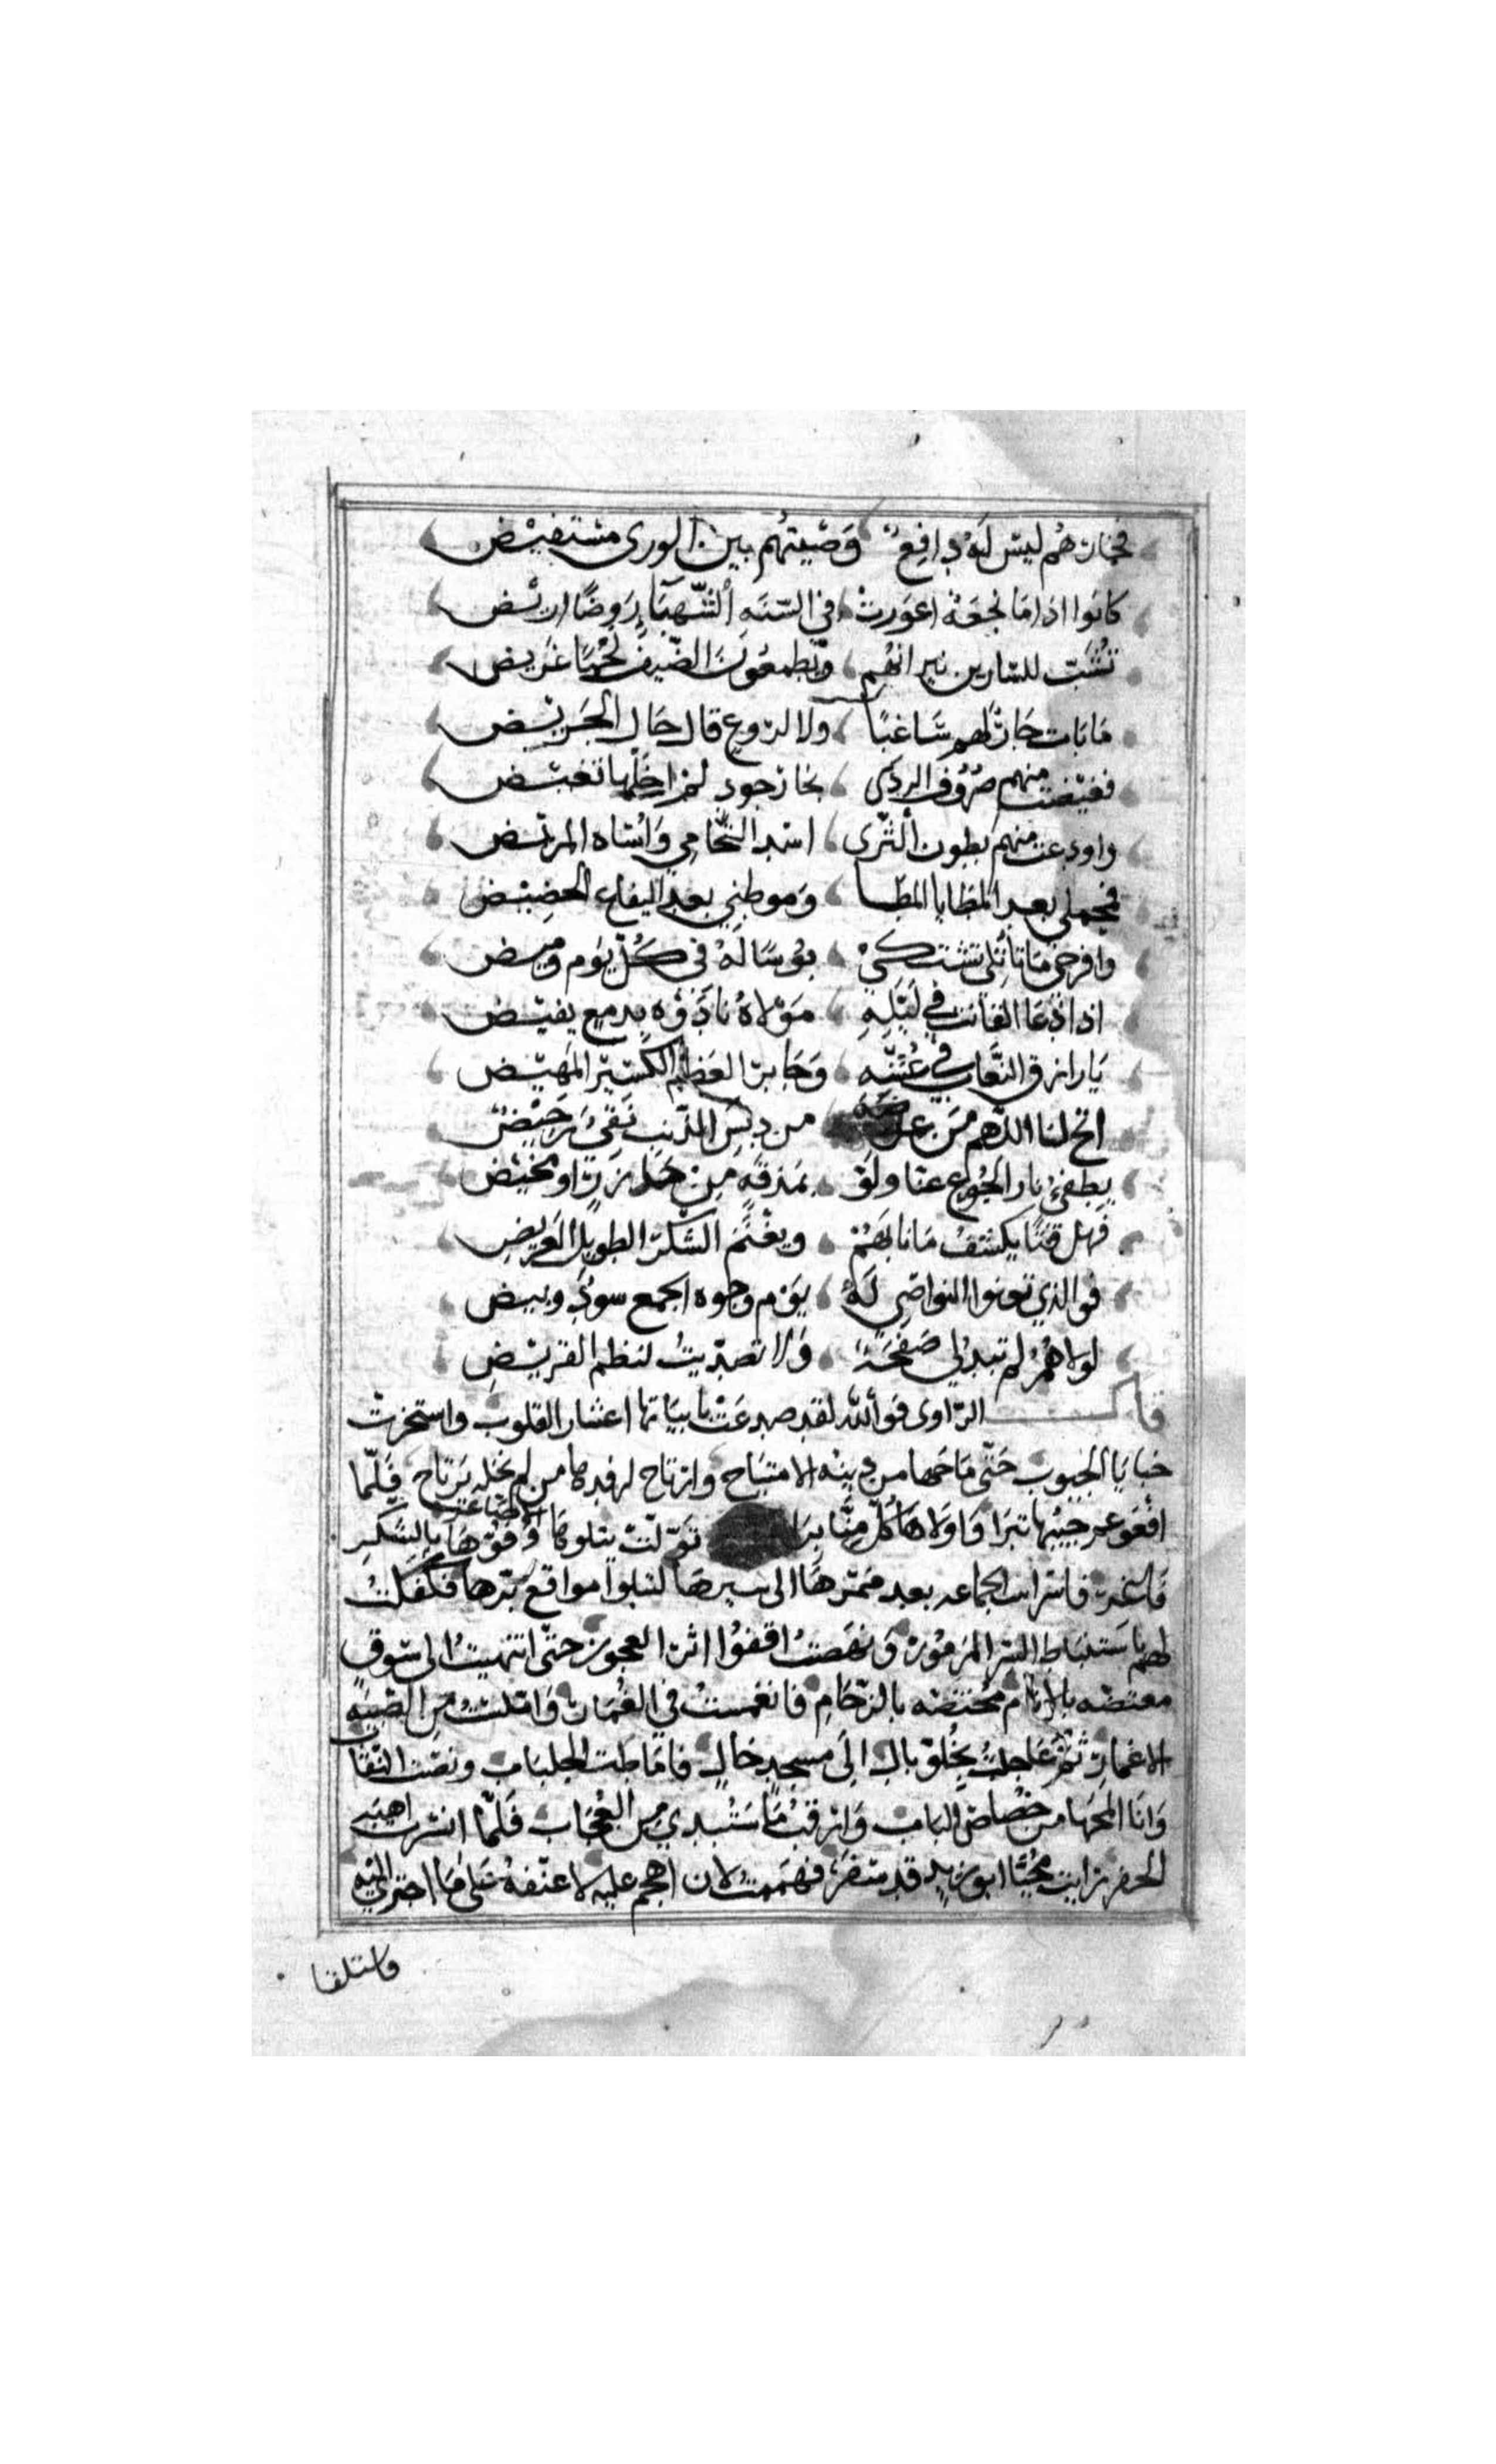 فخارهم ليس له دافع وصيتهم بين الورى مستفيض
كانوا اذا ما نجعة اعورت في السنه الشهباء روضا اريض
تشب للسارين نيرانهم ويطعمون الضيف لحما غريض
ما بات جار لهم ساغبا ولا لروع قال حال الجريض
فغيضت منهم صروف الردى بحار جود لم اخلها تغيض
واودعت منهم بطون الثرى اسد التحامي واساه المريض
فمحملي بعد المطايا المطا وموطني بعد اليفاع الحضيض
وافرخي ما تاتلي تشتكي بوسا له في كل يوم وميض
اذا دعا القانت في ليله مولاه نادوه بدمع يفيض
يا رازق النعاب في عشه وجابر العظم الكسير المهيض
اتح لنا اللهم من عرضه من دنس الذنب نقي رحيض
يطفئ نار الجوع عنا ولو بمذقه من حازر او مخيض
فهل فتى يكشف ما نابهم ويغنم الشكر الطويل العريض
فوالذي تعنوا النواصي له يوم وجوه الجمع سود وبيض
لولاهم لم تبد لي صفحة ولا تصديت لنظم القريض
قال الراوي فوالله لقد صدعت بابياتها اعشار القلوب واستخرجت
خبايا الجيوب حتى ماحها من دينه الامتياح وارتاح لرفدها من لم نخله يرتاح فلما
افعوعم جيبها تبرا واولاها كل منا برا تولت يتلوها الاصاغر وفوها بالشكر
فاغر فاشرابت الجماعه بعد ممرها الى سبرها لتبلوا مواقع برها فكفلت
لهم باستنباط السر المرموز ونهضت اقفوا اثر العجوز حتى انتهيت الى سوق
مغتصه بالانام مختصه بالزحام فانغمست في الغمار واملست من الصبيه
الاغمار ثم عاجت بخلو بال الى مسجد خال فاماطت الجلباب ونضت النقا
وانا المحها من خصاص الباب وارقب ما ستبدي من العجاب فلما انسرت اهبة
الخفر رايت محيا ابو زيد قد سفر فهممت لان اهجم عليه لاعنفه على ما اجرى اليه
فاسلنقا